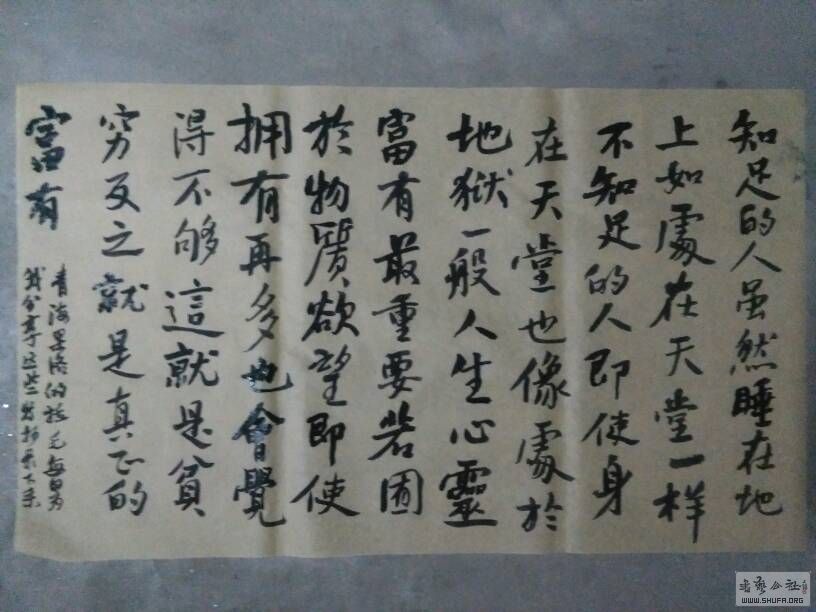 知足的人虽然睡在地
上如處在天堂一样
不知足的人即使身
在天堂也像處於
地獄一般人生心靈
富有最重要若囿
於物質欲望即使
拥有再多也會覺
得不够這就是貧
穷反之就是真正的
富有
青海果洛的扎毛每日为
我分享这些對抄录下来
書藝公社
WWW.SHUFA.ORG